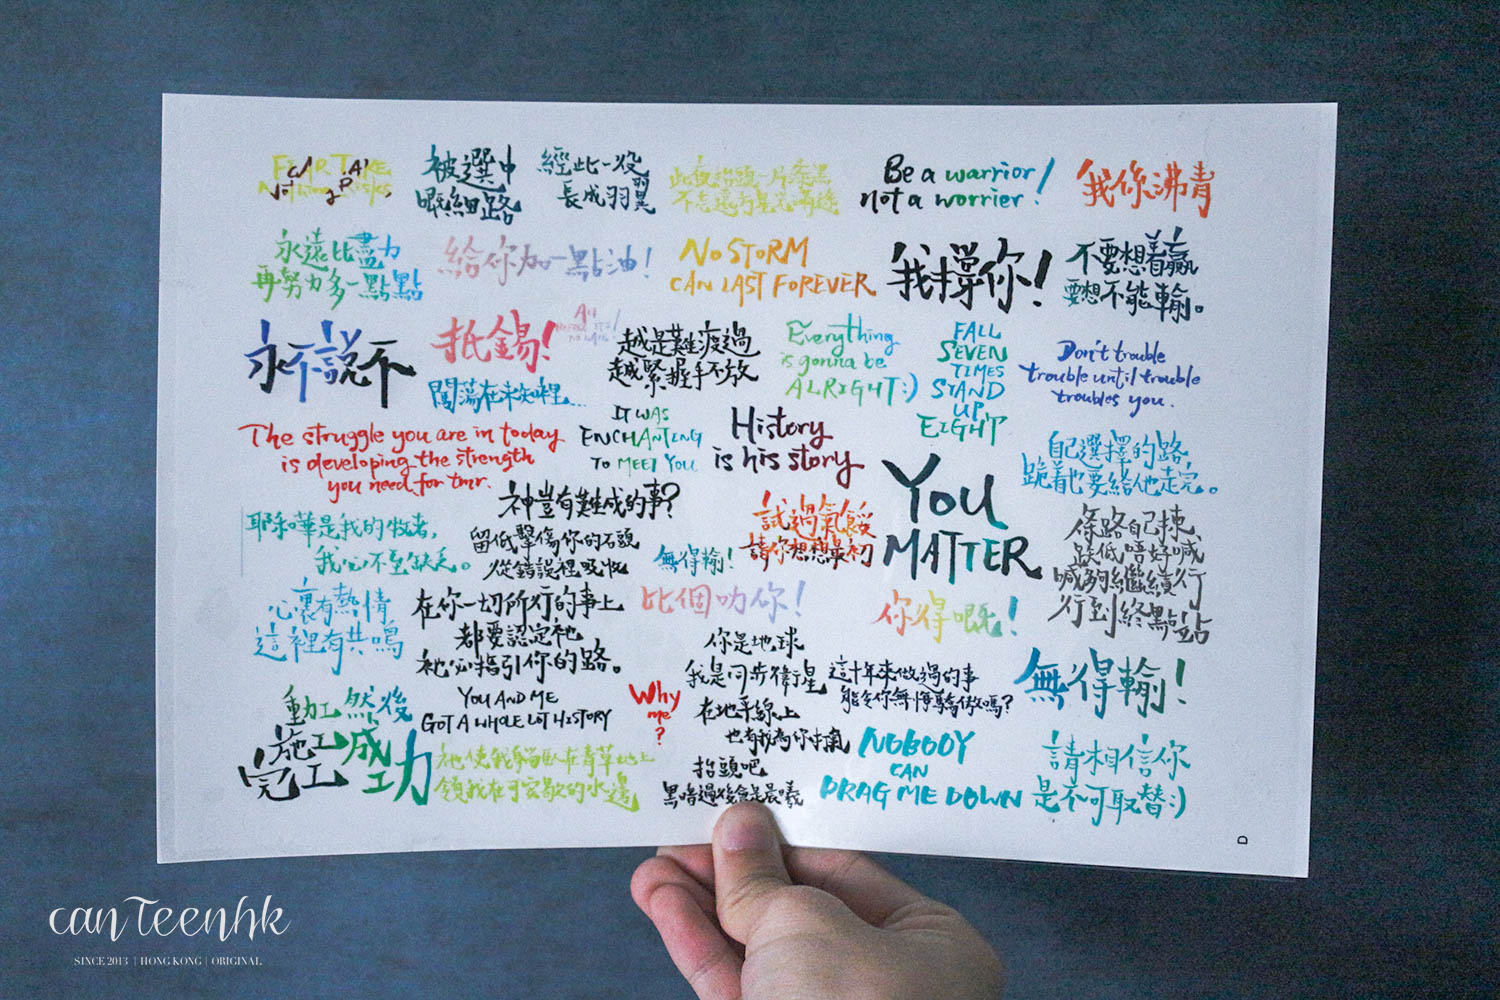 FEAR TAKE
Nothing Risks,
被選中
嘅細路
經此一役
長成羽翼
此夜抬頭一片漆黑
不忘遠方是充滿綫
Be a warrior!
not a worrier!
我係沸青
永遠比盡力
再努力多一點點
給你加一點油!
NO STORM
CAN LAST FOREVER
我撐你!
不要想着贏
要想不能輸。
永不說不
抵錫!
闖蕩在未知裡...
越是難渡過
越緊握手不放
Everything
is gonna be
ALRIGHT:)
FALL
SEVEN
TIMES
STAND
UP
EIGHT
Don't trouble
trouble until trouble
troubles you.
The struggle you are in today
is developing the strength
you need for tmr.
IT WAS
ENCHANTING
TO MEET YOU
History
is his story
YOU
MATTER
自己選擇的路,
跪着也要給他走完。
耶和華是我的牧者,
我必不至缺乏。
神豈有難成的事?
留低擊傷你的石頭
從錯誤裡吸收
無得輸!
試過氣餒
請你想想最初
條路自己揀,
跌低唔好喊
喊夠繼續行
行到終點站
心裏有熱情
這裡有共鳴
在你一切所行的事上
都要認定祂
祂必指引你的路。
比個叻你!
你得嘅!
你是地球
我是同步衛星
在地平線上
也有我為你打氣
這十年來做過的事
能令你無悔驕傲嗎?
無得輸!
動工然後
施工成
完工功
YOU AND ME
GOT A WHOLE LOT HISTORY
Why
me
?
祂使我躺臥在青草地上
領我在可安歇的水邊
抬頭吧
黑暗過後會是晨曦
NOBODY
CAN
DRAG ME DOWN
請相信你
是不可取替:)
D
canTeenhk
SINCE 2013 | HONG KONG | ORIGINAL